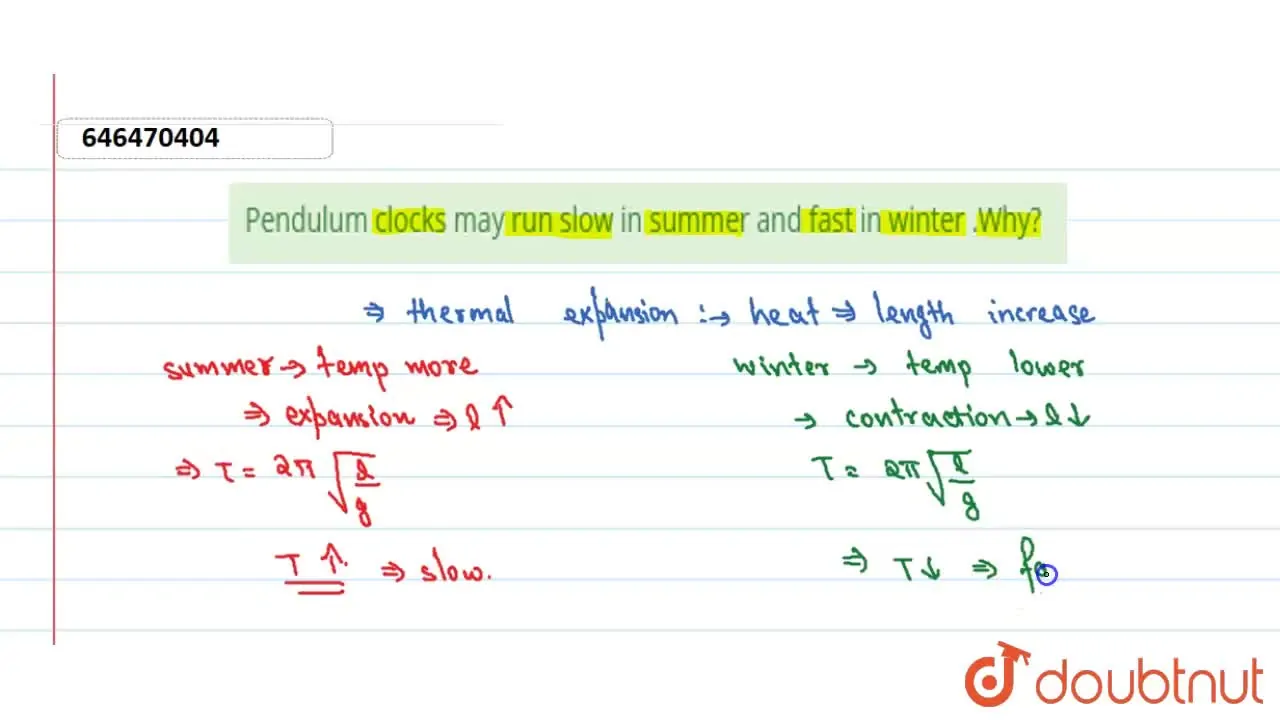 646470404
Pendulum clocks may run slow in summer and fast in winter .Why?
⇒ thermal expansion :→ heat ⇒ length increase
summer → temp more
⇒ expansion ⇒ l ↑
⇒ T = 2π √(l/g)
T ↑ ⇒ slow.
winter → temp lower
→ contraction → l ↓
T = 2π √(l/g)
⇒ T ↓ ⇒ fa
doubtnut